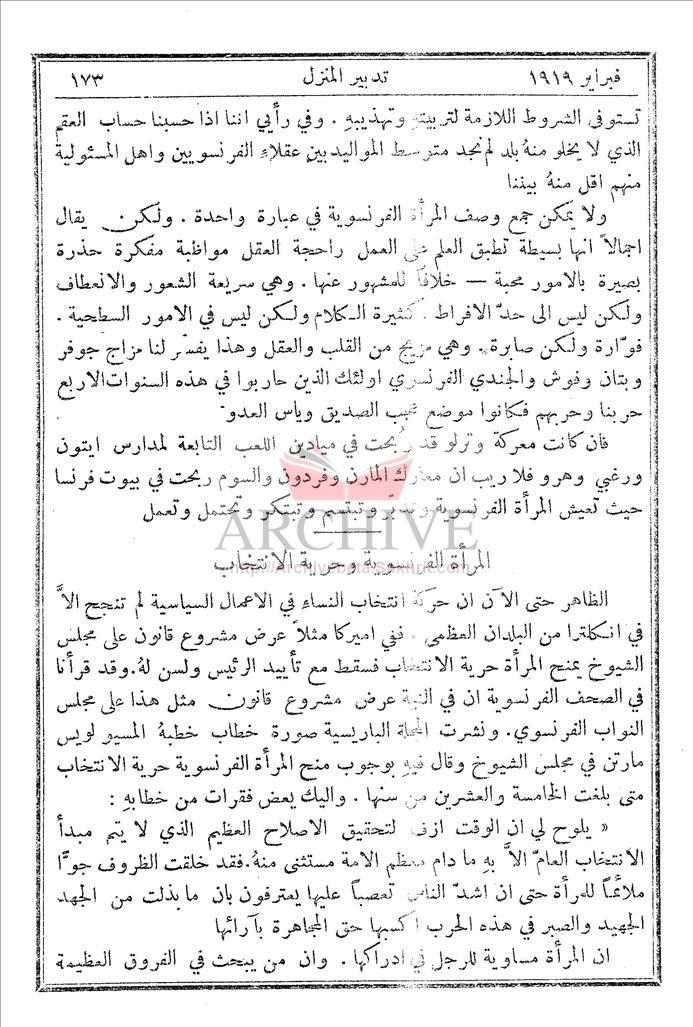 فبراير ١٩١٩ تدبير المنزل ١٧٣
تستوفى الشروط اللازمة لتربيته وتهذيبهِ . وفي رأيي اننا اذا حسبنا حساب العقم
الذي لا يخلو منهُ بلد لم نجد متوسط المواليد بين عقلاء الفرنسويين واهل المسئولية
منهم اقل منهُ بيننا
ولا يمكن جمع وصف المرأة الفرنسوية في عبارة واحدة . ولكن يقال
اجمالاً انها بسيطة تطبق العلم على العمل راجحة العقل مواظبة مفكرة حذرة
بصيرة بالامور محبة — خلافاً للمشهور عنها . وهي سريعة الشعور والانعطاف
ولكن ليس الى حدّ الافراط . كثيرة الكلام ولكن ليس في الامور السطحية .
فوّارة ولكن صابرة . وهي مزيج من القلب والعقل وهذا يفسّر لنا مزاج جوفر
وبتان وفوش والجندي الفرنسوي اولئك الذين حاربوا في هذه السنوات الاربع
حربنا وحربهم فكانوا موضع عجب الصديق وياس العدو
فان كانت معركة وترلو قد ربحت في ميادين اللعب التابعة لمدارس ايتون
ورغبي وهرو فلا ريب ان معارك المارن وفردون والسوم ربحت في بيوت فرنسا
حيث تعيش المرأة الفرنسوية وتدبّر وتبتسم وتبتكر وتحتمل وتعمل
ARCHIVE
http://Archivebeta.Sakhrit.com
المرأة الفرنسوية وحرية الانتخاب
الظاهر حتى الآن ان حركة انتخاب النساء في الاعمال السياسية لم تنجح الاَّ
في انكلترا من البلدان العظمى . ففي اميركا مثلاً عرض مشروع قانون على مجلس
الشيوخ يمنح المرأة حرية الانتخاب فسقط مع تأييد الرئيس ولسن لهُ. وقد قرأنا
في الصحف الفرنسوية ان في النية عرض مشروع قانون مثل هذا على مجلس
النواب الفرنسوي. ونشرت المجلة الباريسية صورة خطاب خطبهُ المسيو لويس
مارتن في مجلس الشيوخ وقال فيهِ بوجوب منح المرأة الفرنسوية حرية الانتخاب
متى بلغت الخامسة والعشرين من سنها . واليك بعض فقرات من خطابهِ :
« يلوح لي ان الوقت ازف لتحقيق الاصلاح العظيم الذي لا يتم مبدأ
الانتخاب العامّ الاَّ بهِ ما دام معظم الامة مستثنى منهُ. فقد خلقت الظروف جوًّا
ملائماً للمرأة حتى ان اشدّ الناس تعصباً عليها يعترفون بان ما بذلت من الجهد
الجهيد والصبر في هذه الحرب اكسبها حق المجاهرة بآرائها
ان المرأة مساوية للرجل في ادراكها . وان من يبحث في الفروق العظيمة